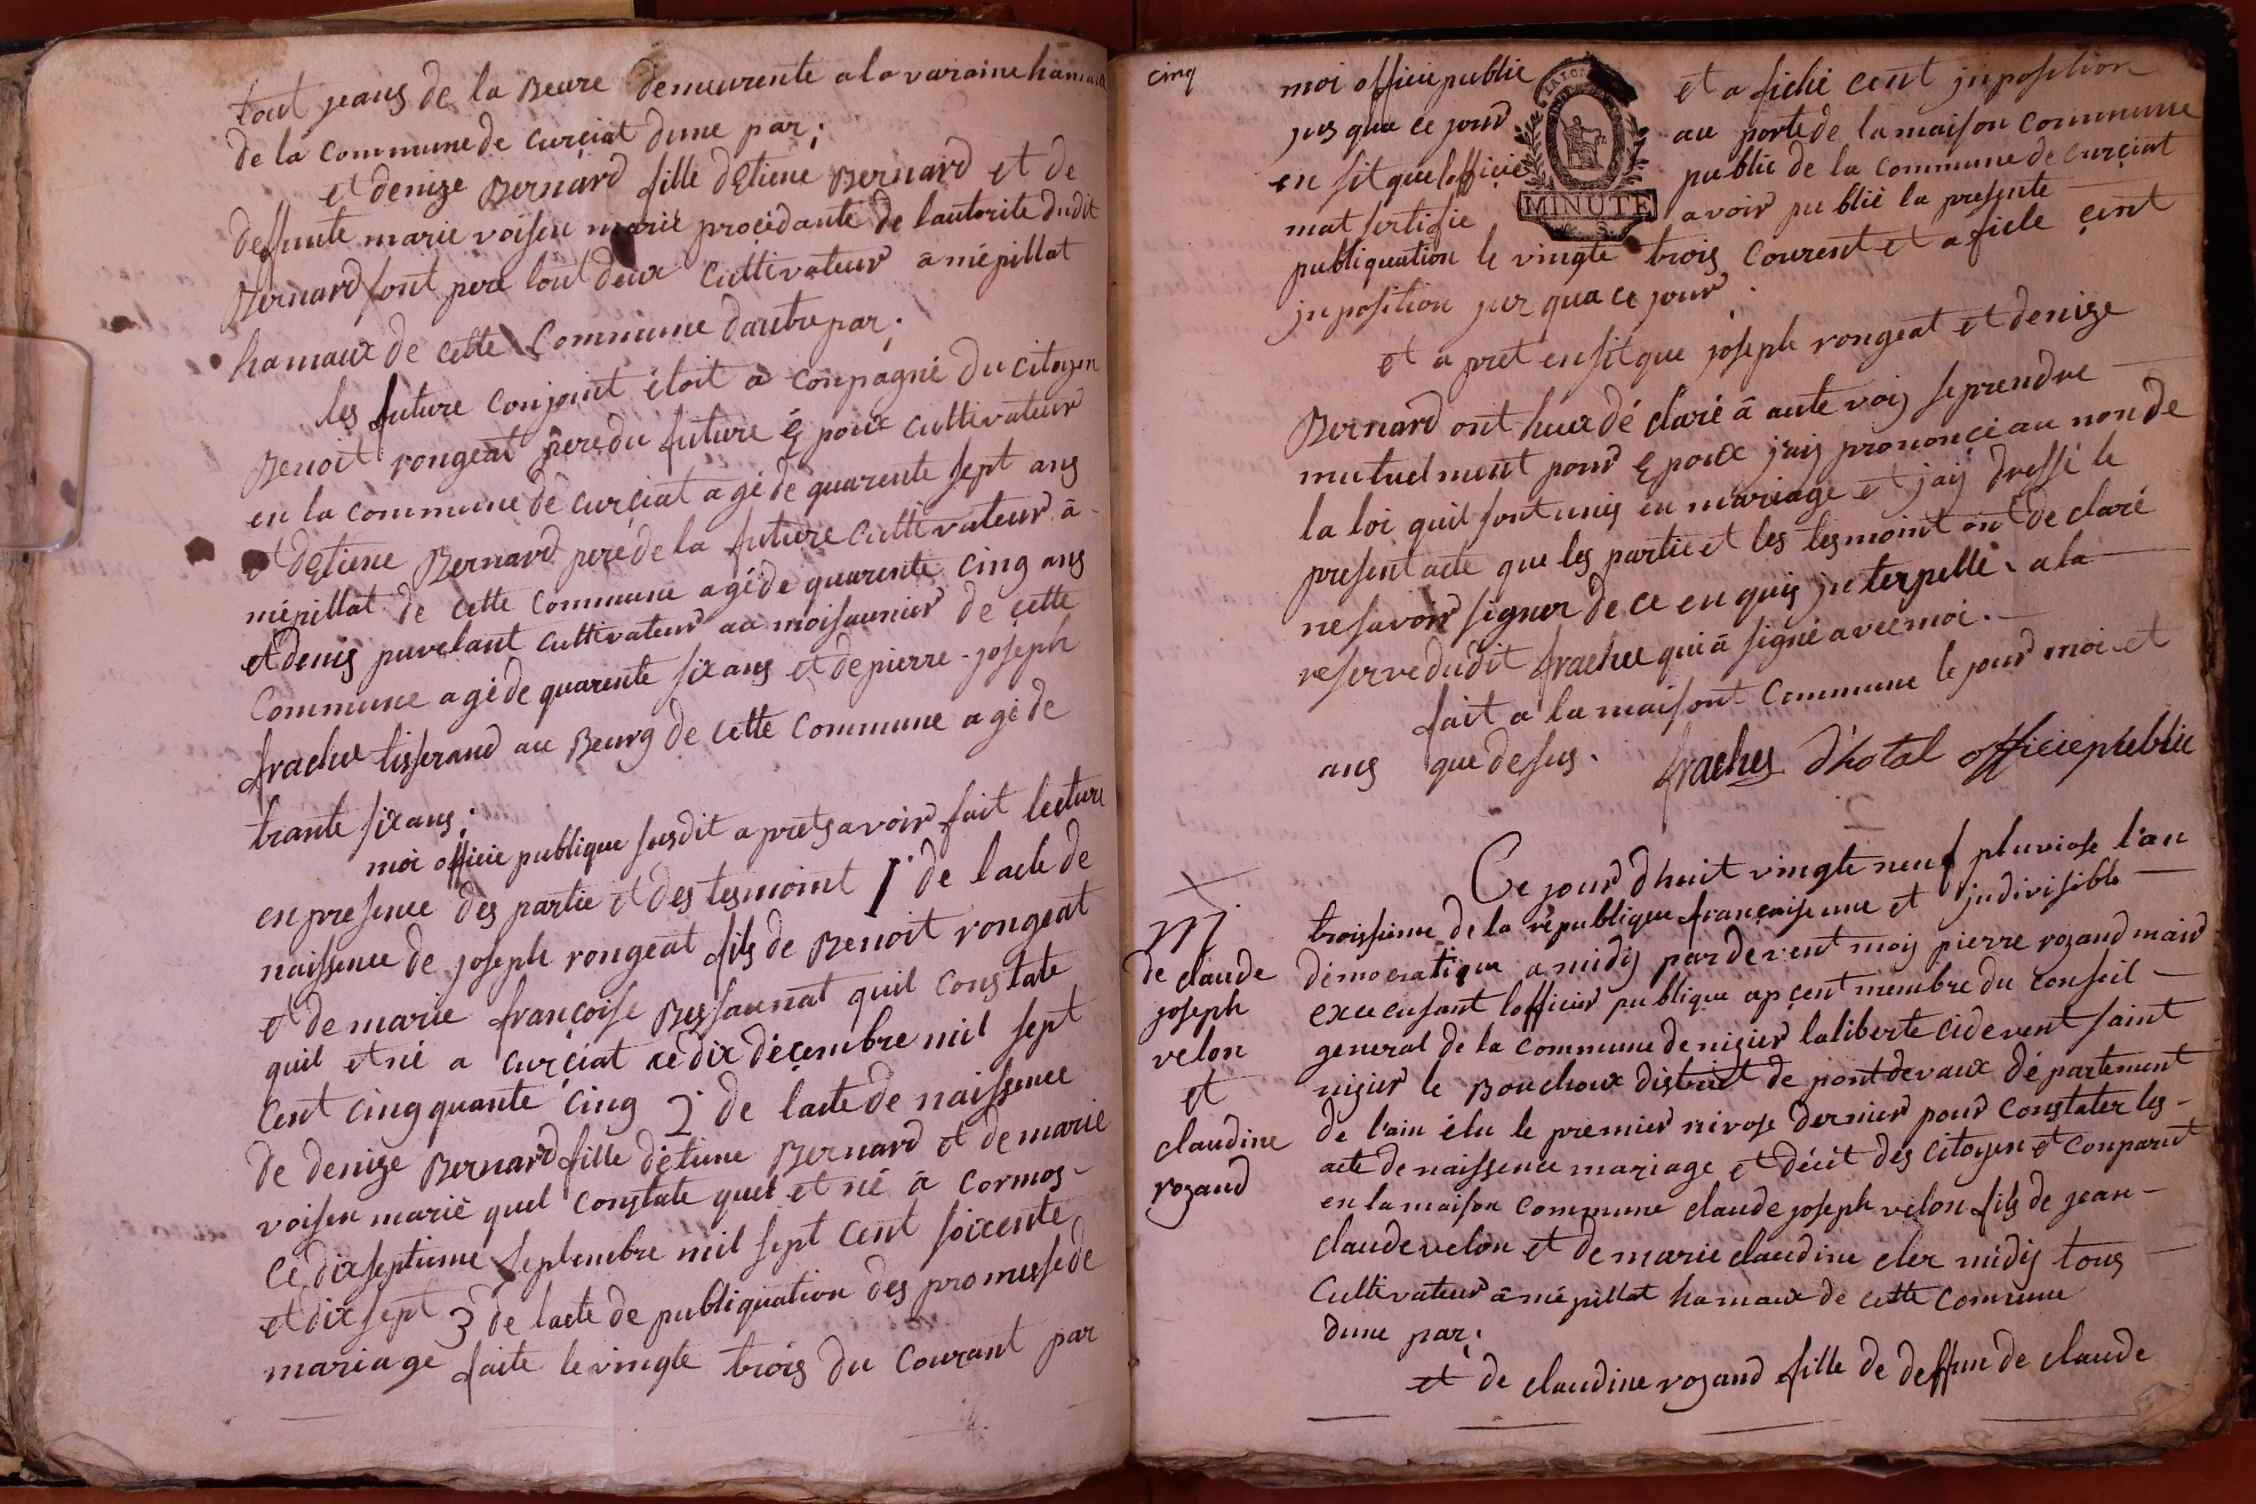 tout jeans de la Beure demeurente a la varaine hamaux
de la commune de curciat dune par;
et denize Bernard fille dEtiene Bernard et de
deffunte marie voisen marié procédante de lautorite dudit
Bernard sont pere tout deux cultivateur a mépillat
hamaux de cette Commune dautre par;
les future conjoint étoit a conpagné du citoyen
Benoit rongeat pere du future Epoux cultivateur
en la commune de curciat agé de quarente sept ans
et dEtiene Bernard pere de la future cultivateur à
mépillat de cette commune agé de quarente cinq ans
et denis puvelant cultivateur au moisaunier de cette
Commune agé de quarente six ans et de pierre-joseph
frachet tisserand au Beurg de cette commune agé de
trante six ans;
moi officie publique susdit a prets avoir fait lecture
en presence des partie et des tesmoint 1° de lacte de
naissence de joseph rongeat fils de Benoit rongeat
et de marie françoise Bessaunat quil constate
quil et né a curçiat ce dix décembre mil sept
cent cinqquante cinq 2 de lacte de naissence
de denize Bernard fille détiene Bernard et de marie
voisen marié quel constate quel et né à cormos-
ce dixseptieme septembre mil sept cent soixente
et dix sept 3 de lacte de publiquation des promesse de
mariage faite le vingte trois du courant par
cinq
moi officie public et a fiché cent jnposition
jus qua ce jour au porte de la maison commune
en sit que lofficie public de la commune de curçiat
mat sertifie avoir publié la presente
MINUTE
publiquation le vingte trois courent et a fiele cent
jnposition jur qua ce jour.
et a pret en sit que joseph rongeat et denize
Bernard ont heux dé claré à aute vois se prendre
mutuelment pour Epoux jais prononcé au non de
la loi quil sont unis en mariage et jaij dressé le
present acte que les partie et les tesmoint ont de claré
ne savoir signer de ce en quis jnterpellé, a la
reserve dudit frachet qui à signé avec moi.
fait a la maisont commune le jour moi et
ans que desus.
frachet d'hotal officie peublic
Ce jour dhuit vingte neuf pluviose l'an
troisieme de la république françaiseune et jndivisible
démocratique a midij pardevent moij pierre rozand mair
execusant lofficier publique apcent membre du conseil
general de la commune de nizier laliberte cidevent saint
nizier le Bouchoux district de pontdevaux département
de l'ain élu le premier nivose dernier pour constater les
acte de naissence mariage et décit des citoyen et conparut
en la maison commune claude joseph velon fils de jean-
claude velon et de marie claudine cler midij tous
Cultivateur à mépillat hamaux de cette comune
dune par;
et de claudine rozand fille de deffun de claude
M.
de claude
joseph
velon
et
claudine
rozand